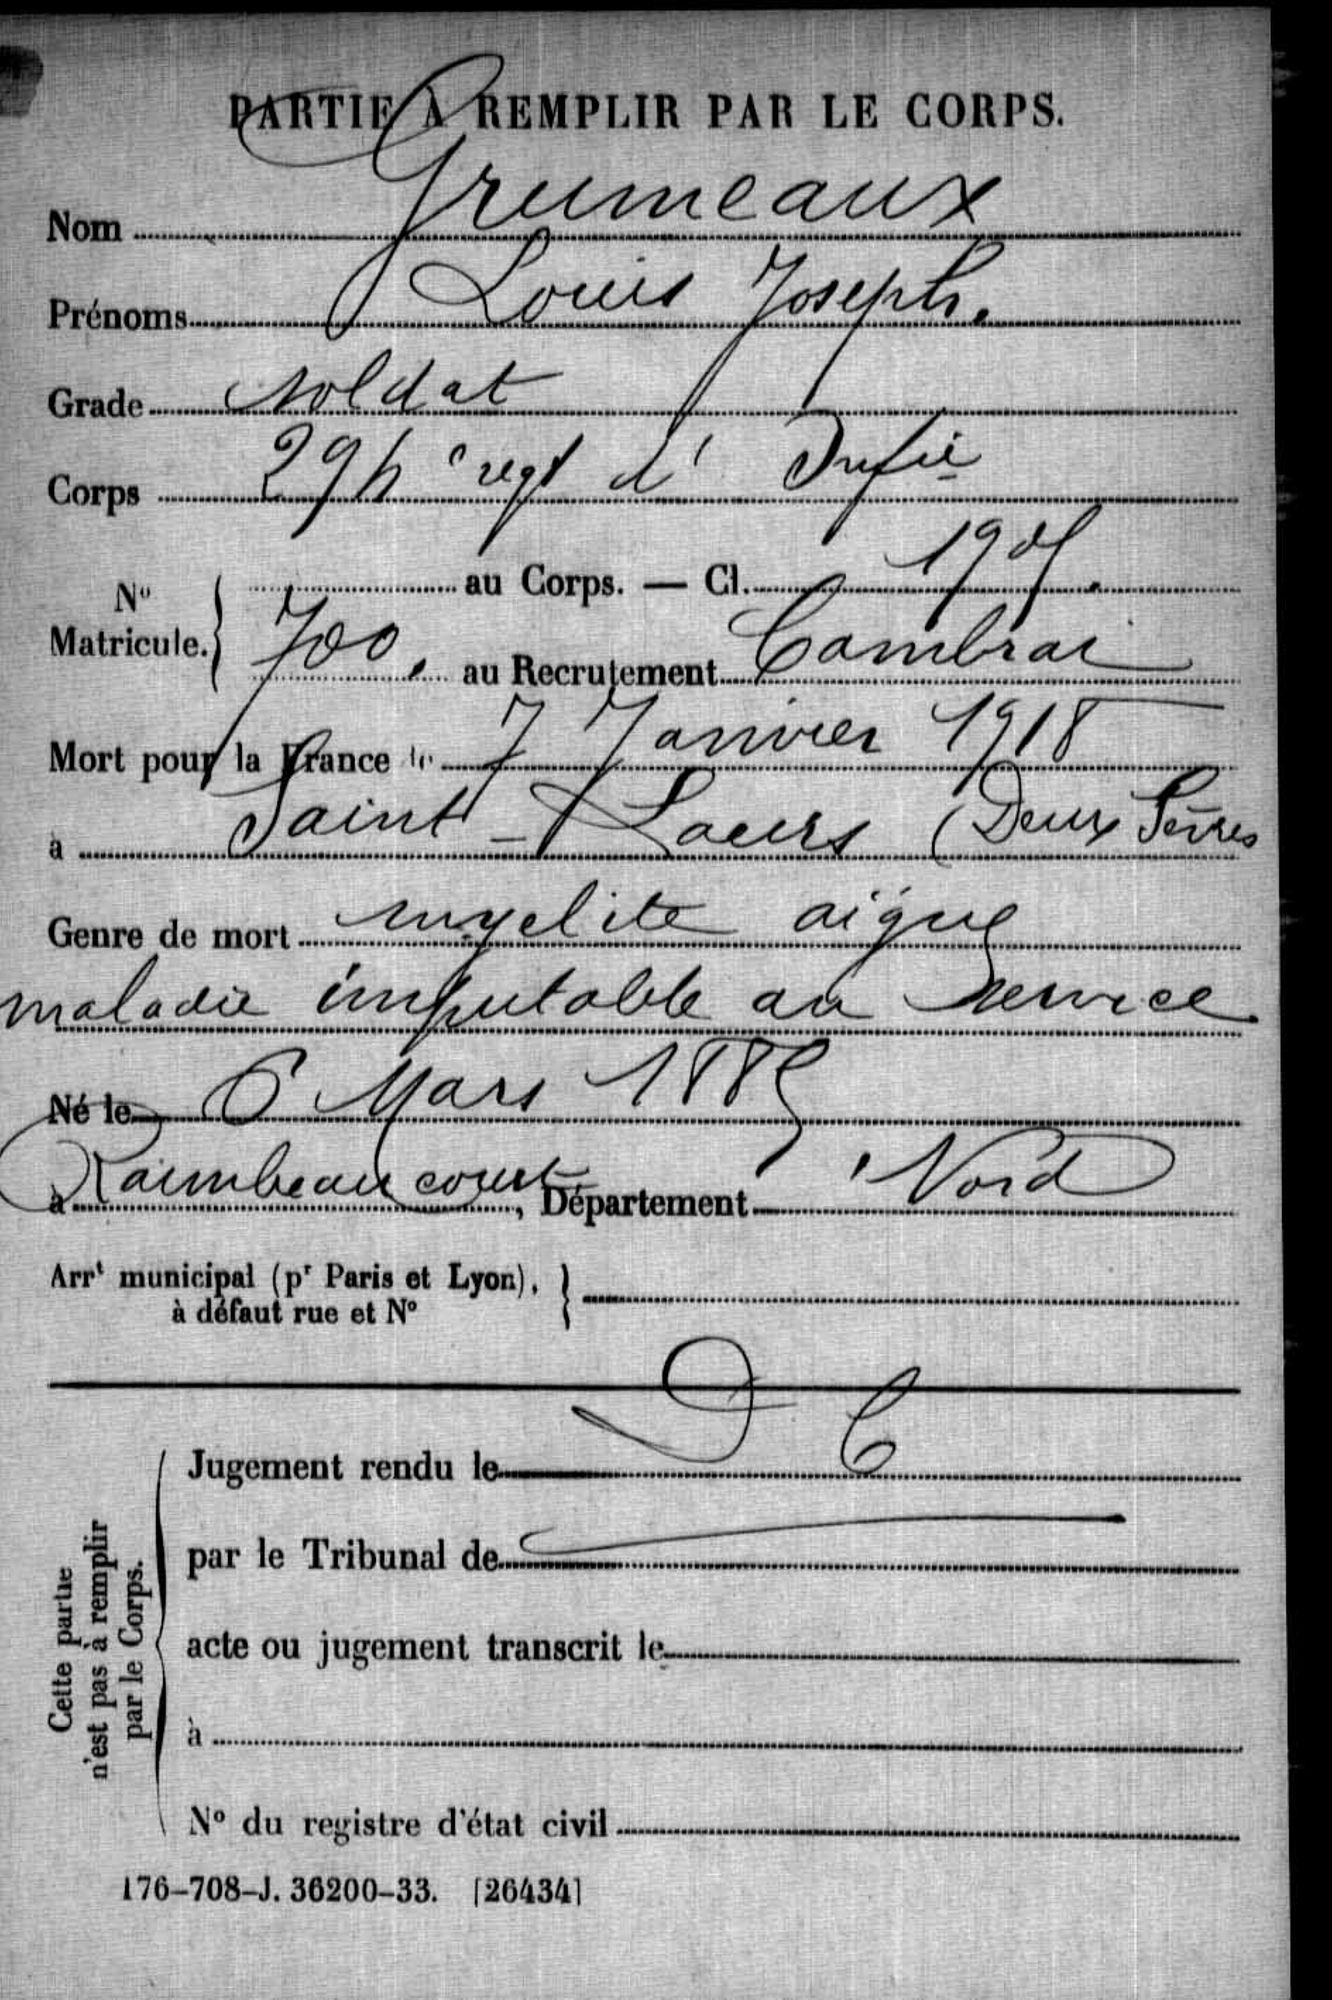 PARTIE À REMPLIR PAR LE CORPS.
Nom Grumeaux
Prénoms Louis Joseph.
Grade soldat
Corps 294e regt d' Infie
au Corps. — Cl. 1905.
N° Matricule. 700. au Recrutement Cambrai
Mort pour la France le 7 Janvier 1918
à Saint-Laurs (Deux Sèvres
Genre de mort myelite aigue
maladie imputable au service
Né le 6 Mars 1885
à Raimbeaucourt, Département Nord
Arrt municipal (pr Paris et Lyon),
à défaut rue et N°
D C
Cette partie
n'est pas à remplir
par le Corps.
Jugement rendu le
par le Tribunal de
acte ou jugement transcrit le
à
N° du registre d'état civil
176-708-J. 36200-33. [26434]